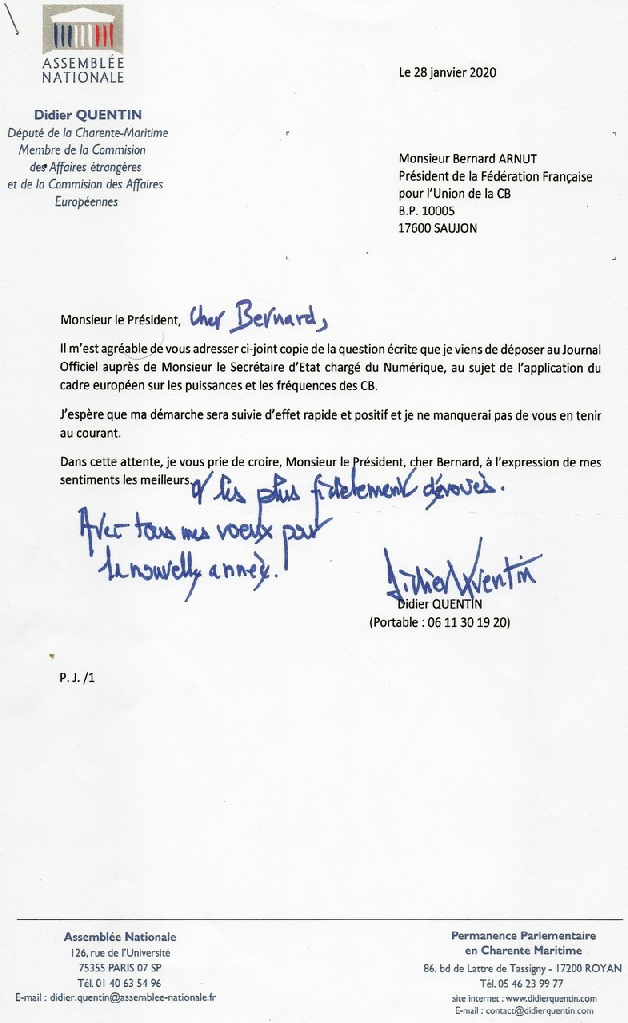 ASSEMBLÉE
NATIONALE
Didier QUENTIN
Député de la Charente-Maritime
Membre de la Commission
des Affaires étrangères
et de la Commission des Affaires
Européennes
Le 28 janvier 2020
Monsieur Bernard ARNUT
Président de la Fédération Française
pour l'Union de la CB
B.P. 10005
17600 SAUJON
Monsieur le Président, Cher Bernard,
Il m'est agréable de vous adresser ci-joint copie de la question écrite que je viens de déposer au Journal
Officiel auprès de Monsieur le Secrétaire d'Etat chargé du Numérique, au sujet de l'application du
cadre européen sur les puissances et les fréquences des CB.
J'espère que ma démarche sera suivie d'effet rapide et positif et je ne manquerai pas de vous en tenir
au courant.
Dans cette attente, je vous prie de croire, Monsieur le Président, cher Bernard, à l'expression de mes
sentiments les meilleurs. et les plus fidèlement dévoués.
Avec tous mes voeux pour
la nouvelle année.
Didier Quentin
Didier QUENTIN
(Portable : 06 11 30 19 20)
P. J. /1
Assemblée Nationale
126, rue de l'Université
75355 PARIS 07 SP
Tél. 01 40 63 54 96
E-mail : didier.quentin@assemblee-nationale.fr
Permanence Parlementaire
en Charente Maritime
86, bd de Lattre de Tassigny - 17200 ROYAN
Tél. 05 46 23 99 77
site internet : www.didierquentin.com
E-mail : contact@didierquentin.com